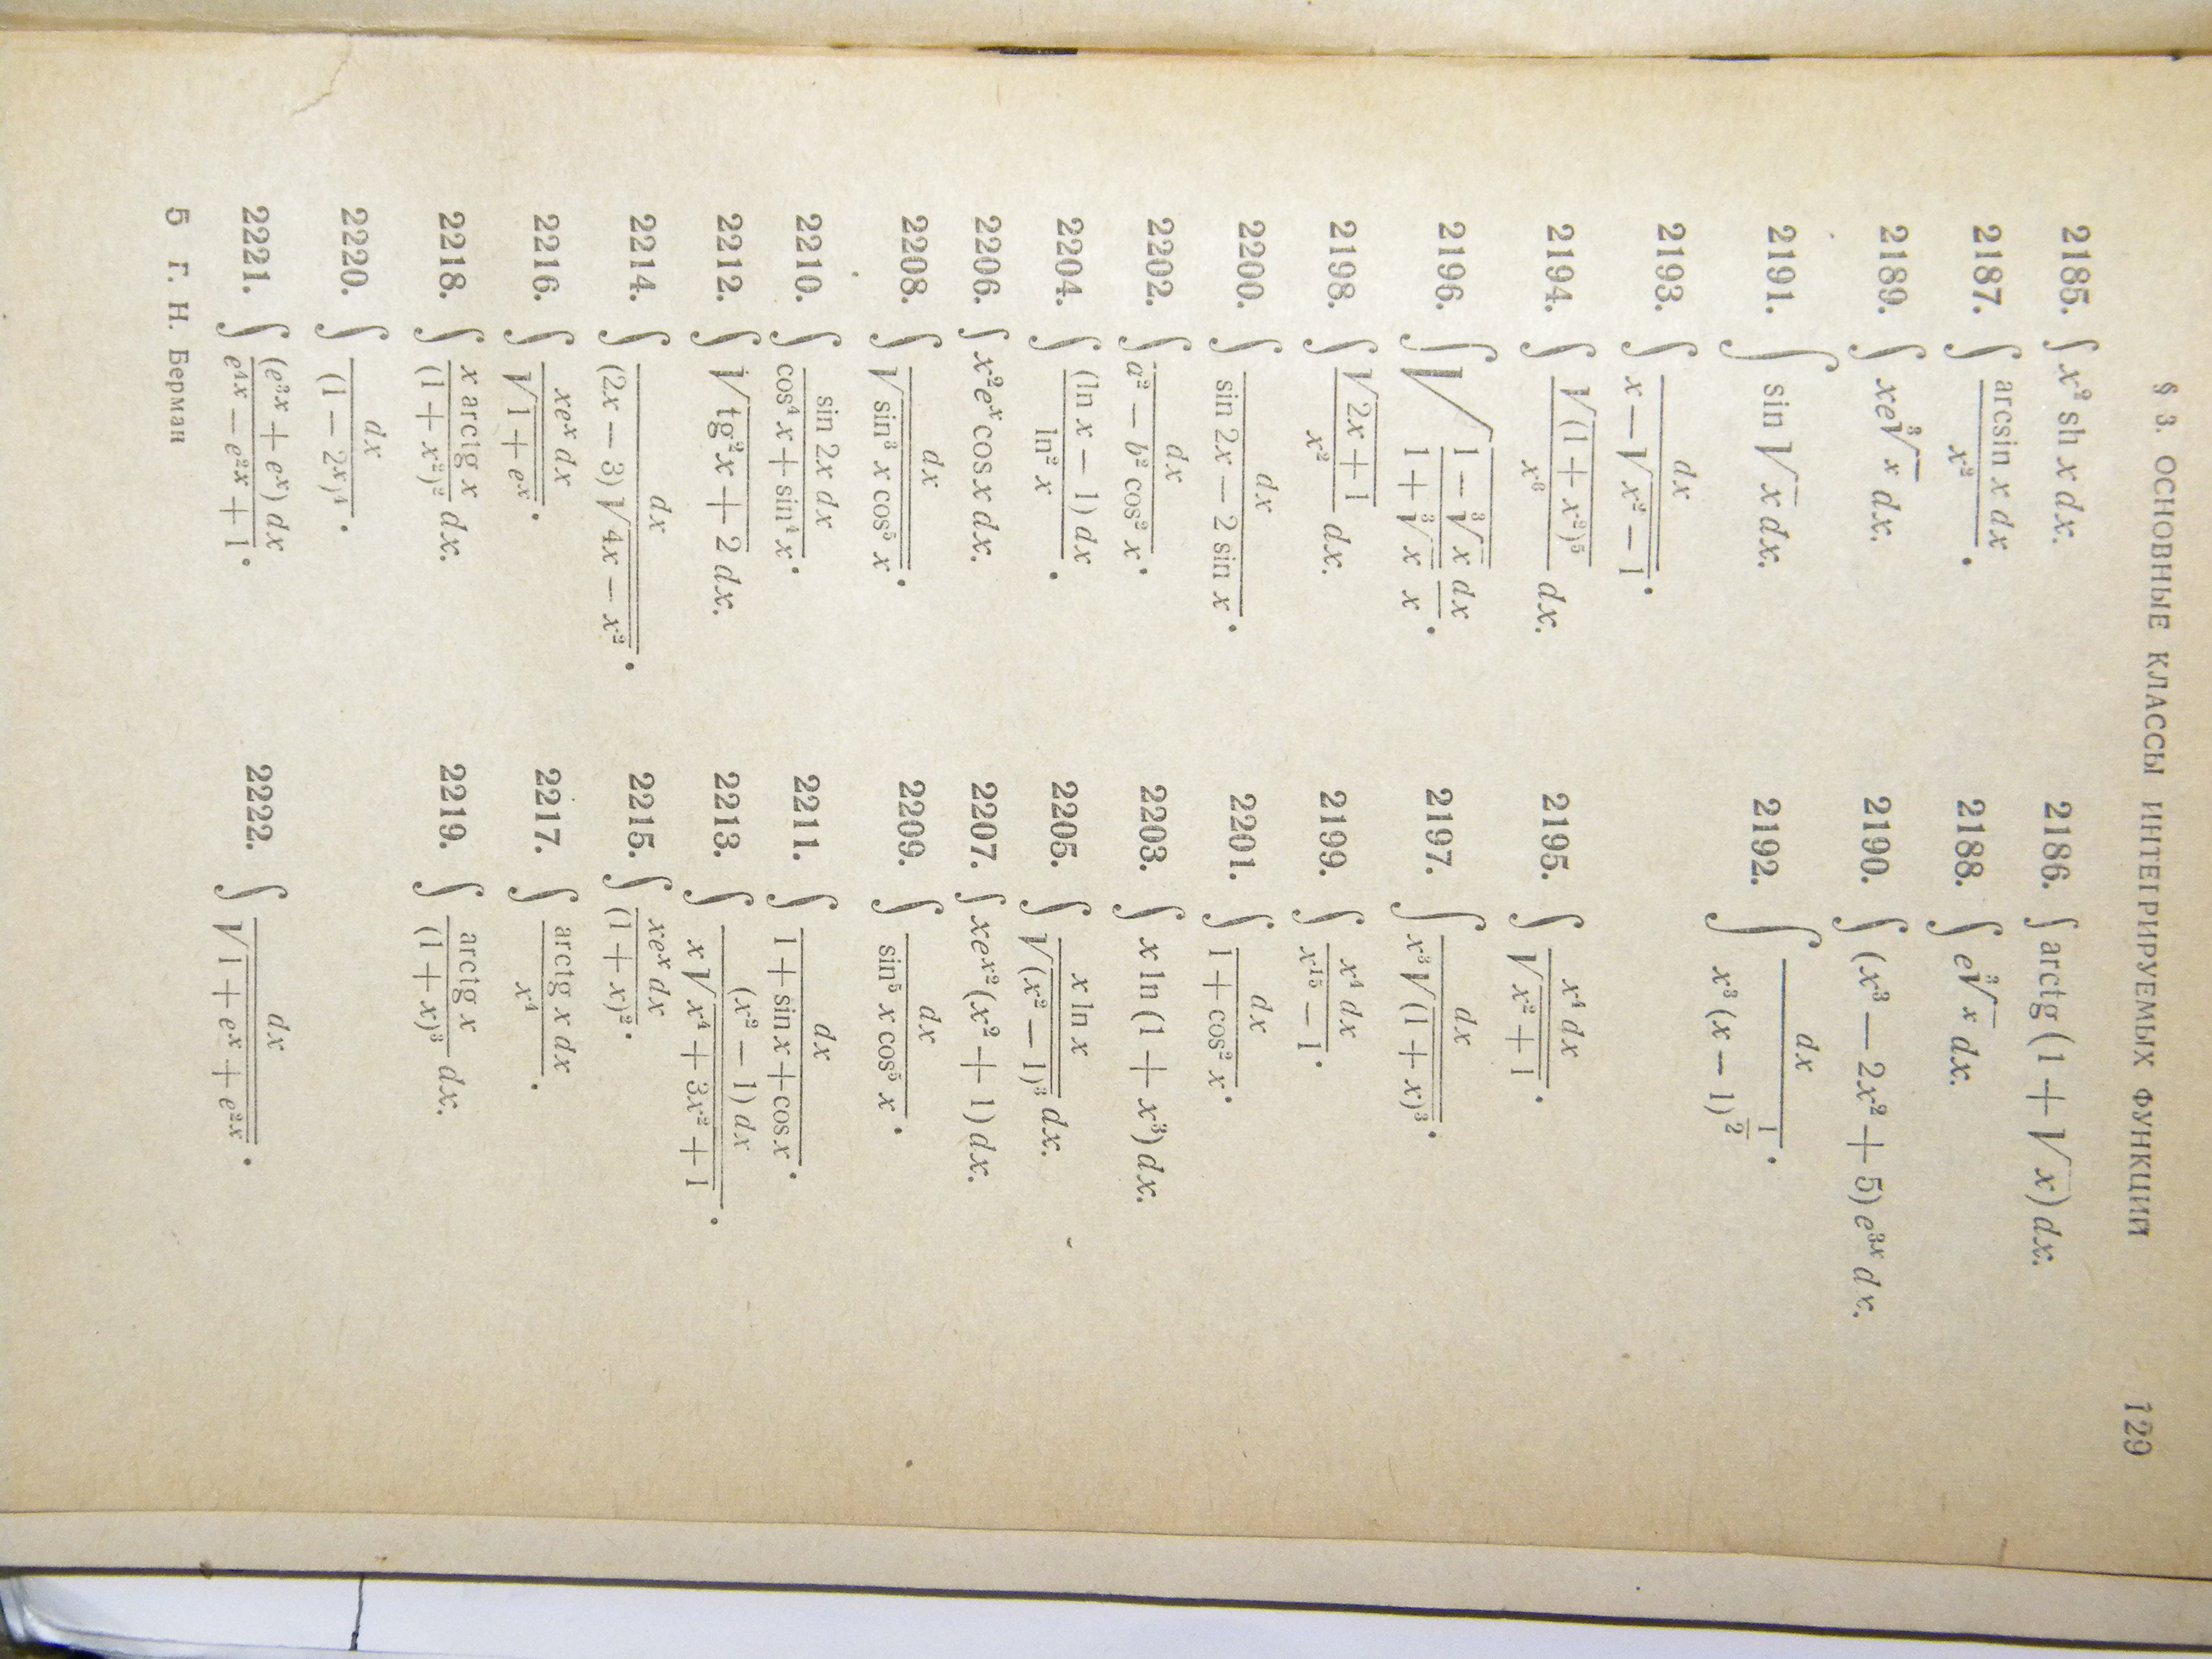 § 3. ОСНОВНЫЕ КЛАССЫ ИНТЕГРИРУЕМЫХ ФУНКЦИЙ 129
2185. ∫ x² sh x dx. 2186. ∫ arctg (1 + √x) dx.
2187. ∫ (arcsin x dx)/x². 2188. ∫ e^(∛x) dx.
2189. ∫ xe^(∛x) dx. 2190. ∫ (x³ — 2x² + 5) e^(3x) dx.
2191. ∫ sin √x dx. 2192. ∫ dx/(x³ (x — 1)^(1/2)).
2193. ∫ dx/(x — √(x² — 1)).
2194. ∫ √((1 + x²)⁵)/x⁶ dx. 2195. ∫ (x⁴ dx)/√(x² + 1).
2196. ∫ √((1 — ∛x)/(1 + ∛x)) dx/x. 2197. ∫ dx/(x³√((1 + x)³)).
2198. ∫ √(2x + 1)/x² dx. 2199. ∫ (x⁴ dx)/(x¹⁵ — 1).
2200. ∫ dx/(sin 2x — 2 sin x). 2201. ∫ dx/(1 + cos² x).
2202. ∫ dx/(a² — b² cos² x). 2203. ∫ x ln (1 + x³) dx.
2204. ∫ ((ln x — 1) dx)/ln² x. 2205. ∫ (x ln x)/√((x² — 1)³) dx.
2206. ∫ x²eˣ cos x dx. 2207. ∫ xe^(x²) (x² + 1) dx.
2208. ∫ dx/√(sin³ x cos⁵ x). 2209. ∫ dx/(sin⁵ x cos⁵ x).
2210. ∫ (sin 2x dx)/(cos⁴ x + sin⁴ x). 2211. ∫ dx/(1 + sin x + cos x).
2212. ∫ √(tg² x + 2) dx. 2213. ∫ ((x² — 1) dx)/(x√(x⁴ + 3x² + 1)).
2214. ∫ dx/((2x — 3)√(4x — x²)). 2215. ∫ (xeˣ dx)/(1 + x)².
2216. ∫ (xeˣ dx)/√(1 + eˣ). 2217. ∫ (arctg x dx)/x⁴.
2218. ∫ (x arctg x)/(1 + x²)² dx. 2219. ∫ (arctg x)/(1 + x)³ dx.
2220. ∫ dx/(1 — 2ˣ)⁴.
2221. ∫ ((e³ˣ + eˣ) dx)/(e⁴ˣ — e²ˣ + 1). 2222. ∫ dx/√(1 + eˣ + e²ˣ).
5 Г. Н. Берман